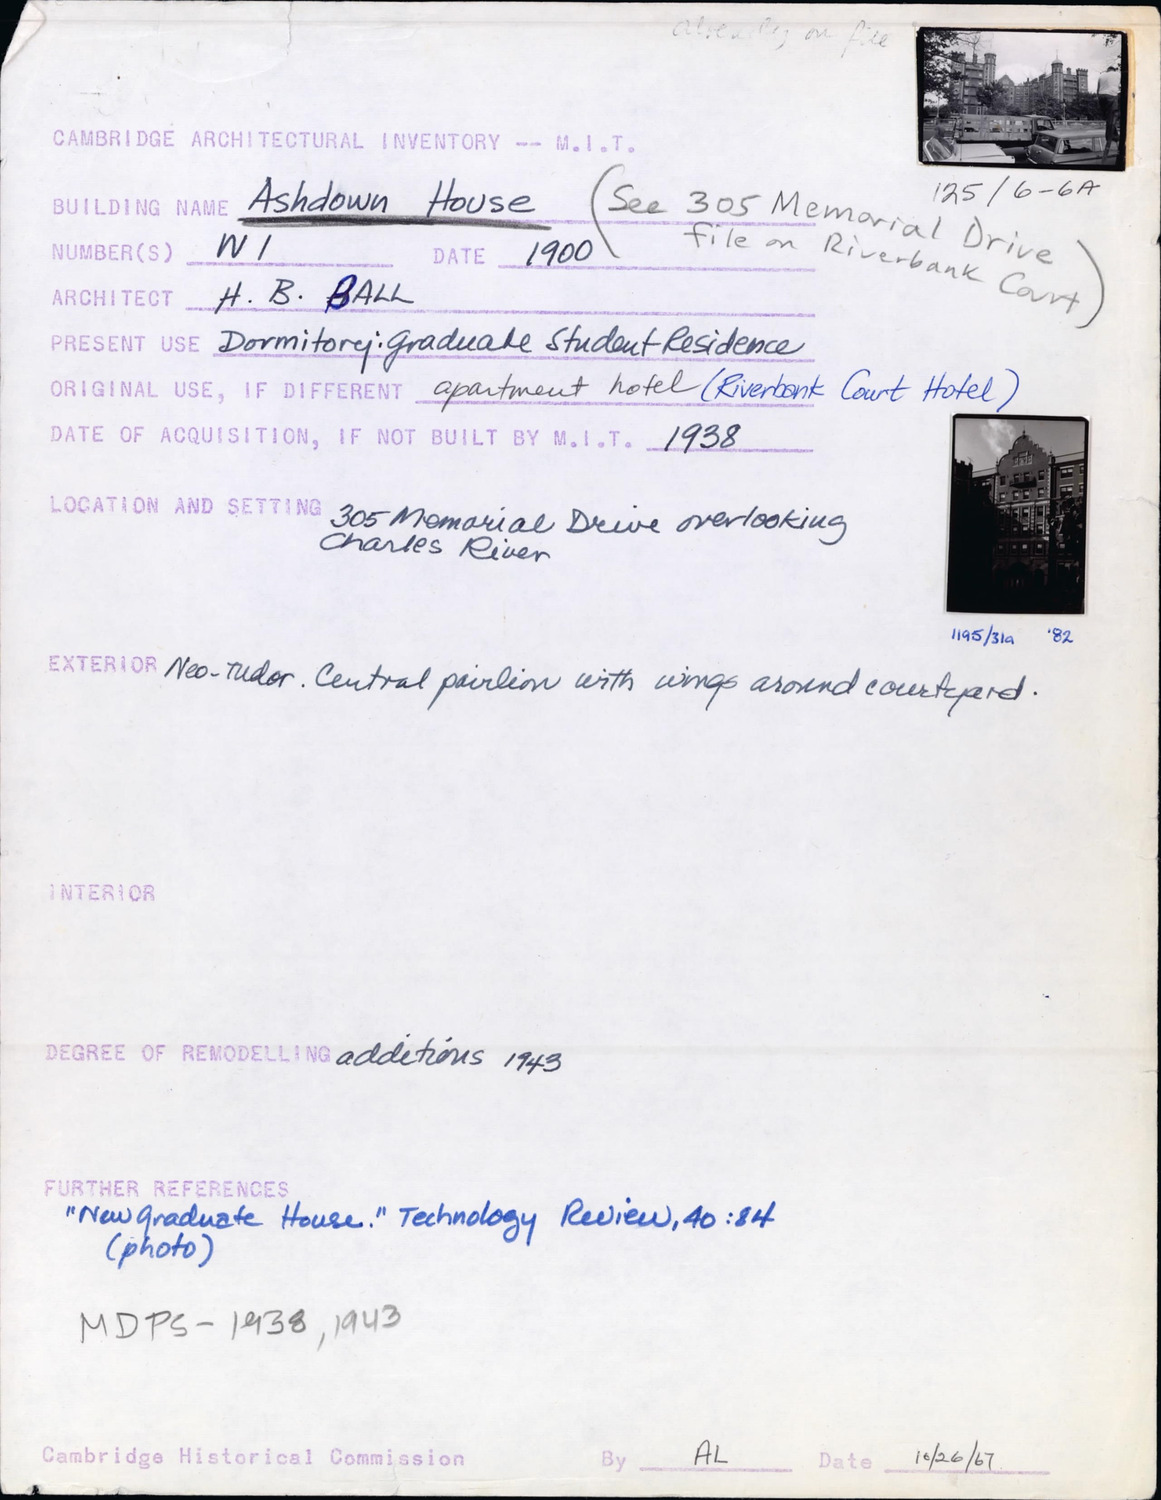 already on file
CAMBRIDGE ARCHITECTURAL INVENTORY -- M.I.T.
125/6-6A
BUILDING NAME Ashdown House (See 305 Memorial Drive
file on Riverbank Court)
NUMBER(S) W1 DATE 1900
ARCHITECT H. B. BALL
PRESENT USE Dormitory: Graduate Student Residence
ORIGINAL USE, IF DIFFERENT apartment hotel (Riverbank Court Hotel)
DATE OF ACQUISITION, IF NOT BUILT BY M.I.T. 1938
LOCATION AND SETTING 305 Memorial Drive overlooking
Charles River
1195/31a '82
EXTERIOR Neo-Tudor. Central pavilion with wings around courtyard.
INTERIOR
DEGREE OF REMODELLING additions 1943
FURTHER REFERENCES
"New Graduate House." Technology Review, 40:84
(photo)
MDPS - 1938, 1943
Cambridge Historical Commission By AL Date 10/26/67